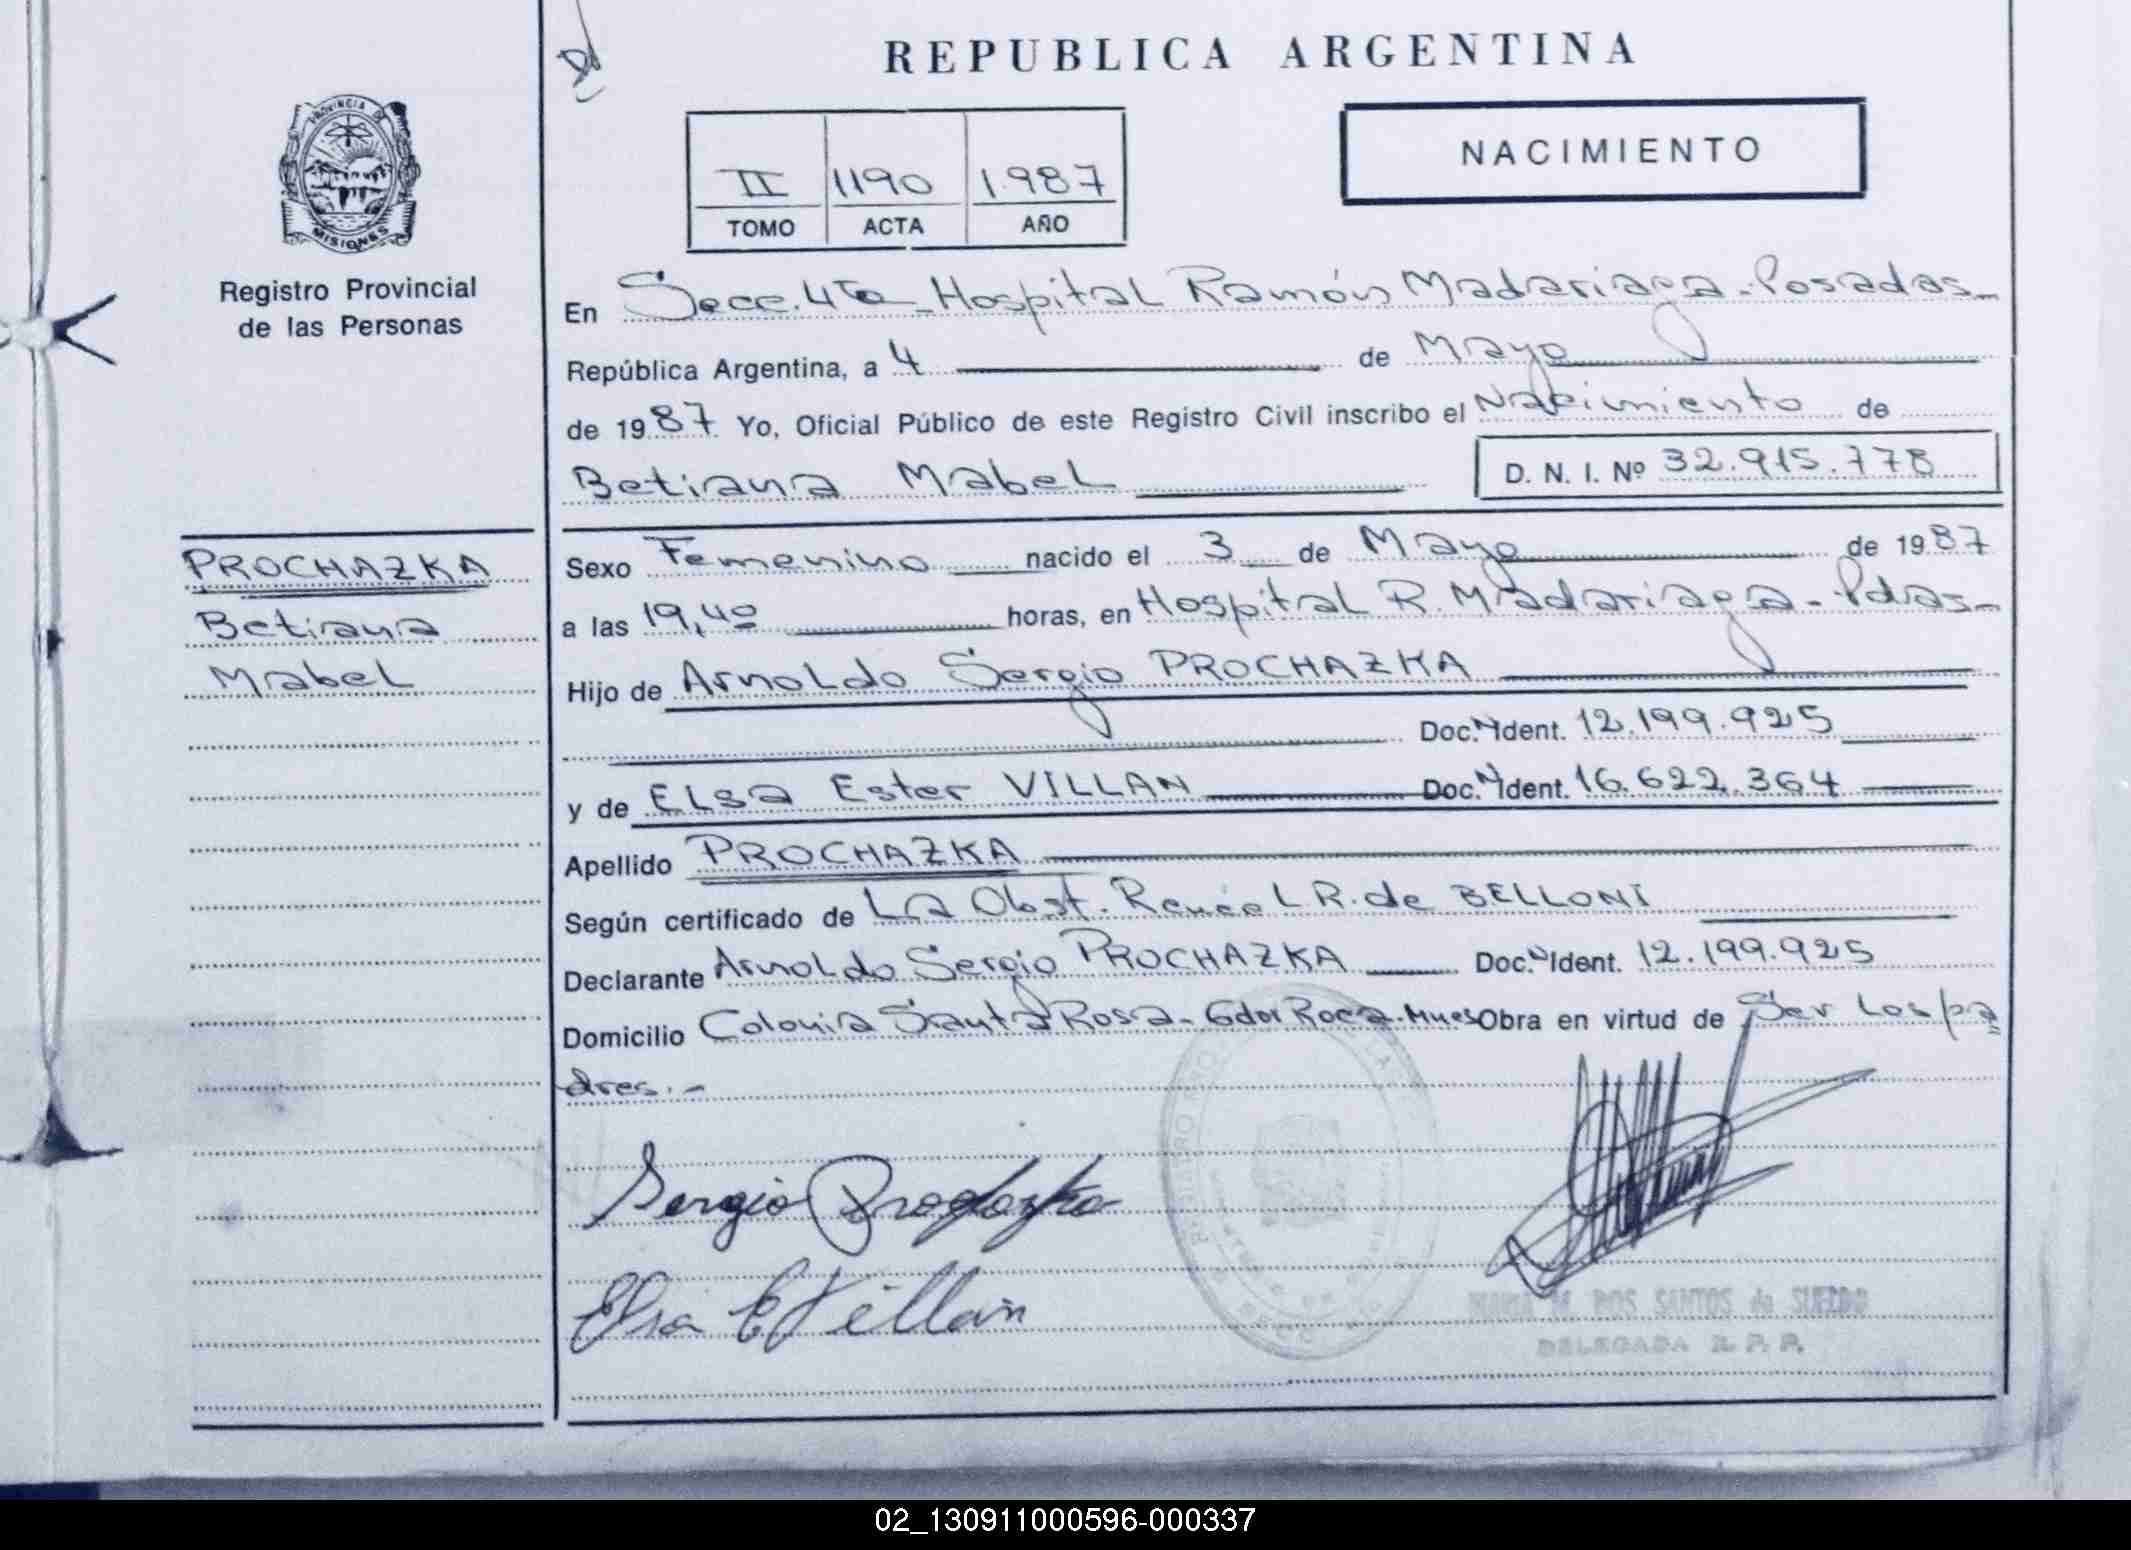 REPUBLICA ARGENTINA
PROVINCIA DE
MISIONES
Registro Provincial
de las Personas
II 1190 1.987
TOMO ACTA AÑO
NACIMIENTO
En Secc. 4ta_Hospital Ramón Madariaga-Posadas_
República Argentina, a 4 de Mayo
de 1987 Yo, Oficial Público de este Registro Civil inscribo el Nacimiento de
Betiana Mabel D. N. I. Nº 32.915.778
PROCHAZKA
Betiana
Mabel
Sexo Femenino nacido el 3 de Mayo de 1987
a las 19,40 horas, en Hospital R. Madariaga-Pdas_
Hijo de Arnoldo Sergio PROCHAZKA
Doc. N Ident. 12.199.925
y de Elsa Ester VILLAN Doc. N Ident. 16.622.364
Apellido PROCHAZKA
Según certificado de La Obst. Renée L R. de BELLONI
Declarante Arnoldo Sergio PROCHAZKA Doc. N Ident. 12.199.925
Domicilio Colonia Santa Rosa-Gdor Roca.Mnes Obra en virtud de Ser Los pa
dres.-
Sergio Prochazka
Elsa E Villan
DOS SANTOS de
DELEGADA R. P. P.
02_130911000596-000337